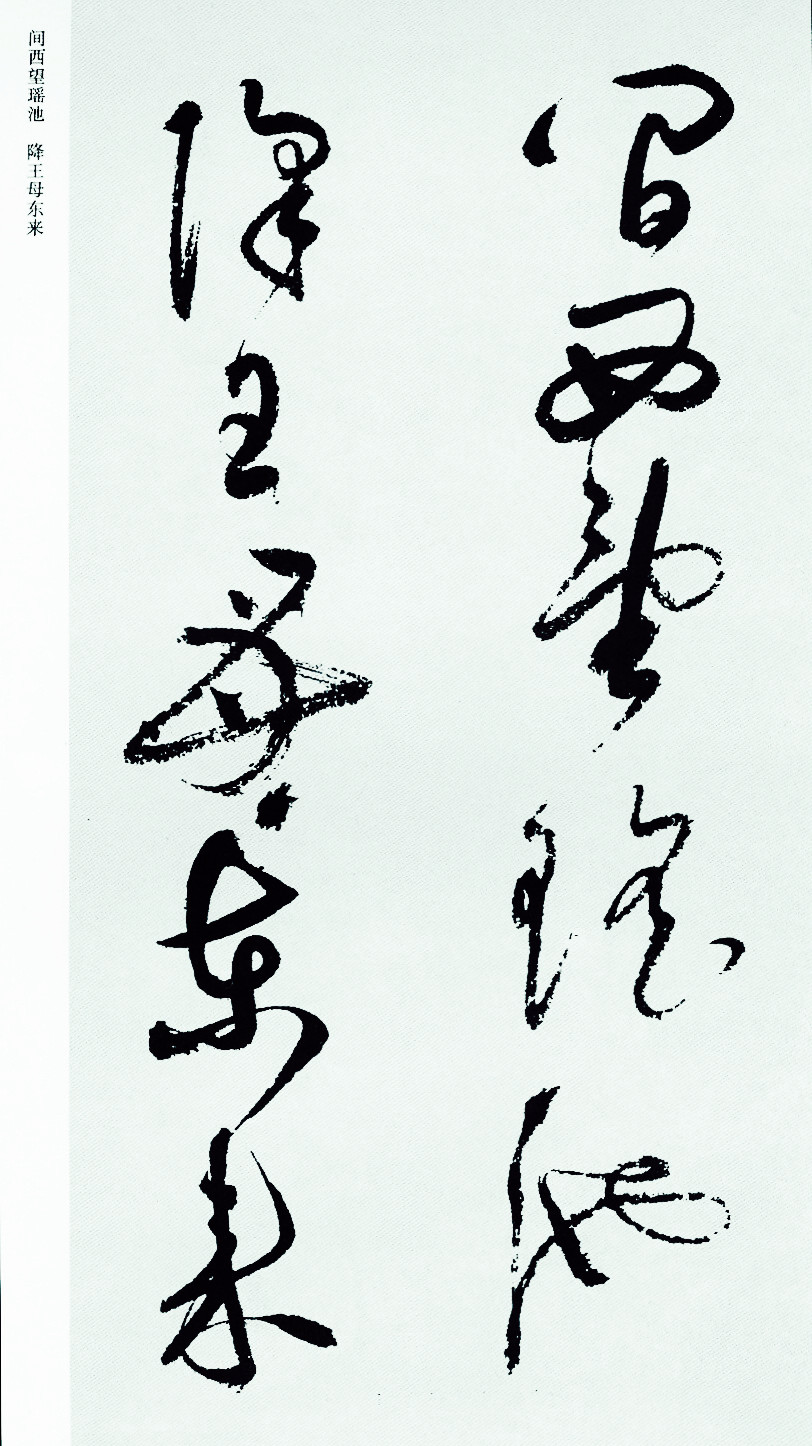 間西望瑤池
降王母東來
间西望瑶池　降王母东来